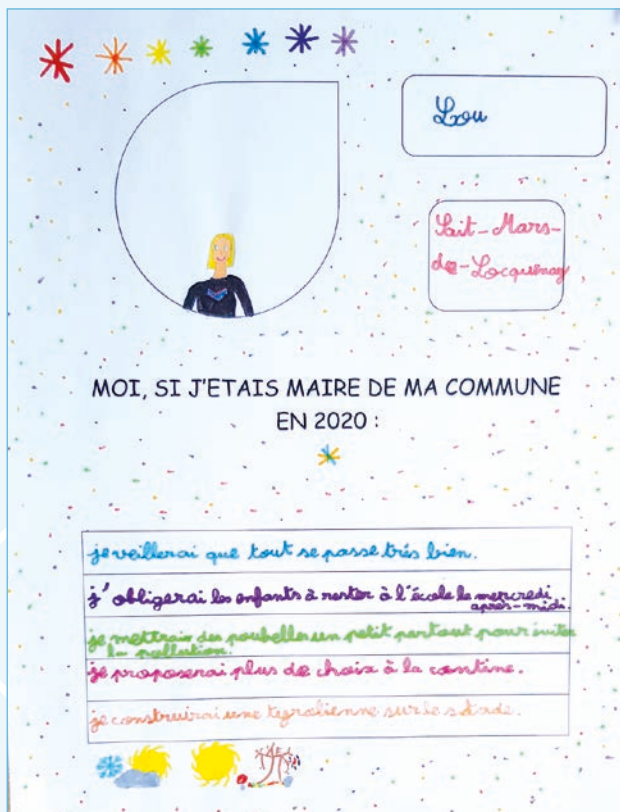 Lou
Sait-Mars-
de-Locquenay
MOI, SI J'ETAIS MAIRE DE MA COMMUNE
EN 2020 :
je veillerai que tout se passe trés bien.
j'obligerai les enfants à rester à l'école le mercredi
après-midi.
je mettrais des poubelles un petit partout pour éviter
la pollution.
je proposerai plus de choix à la cantine.
je construirai une tyrolienne sur le stade.